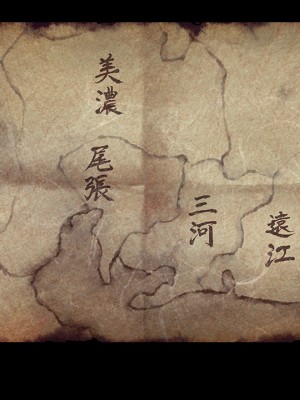 美濃
尾張
三河
遠江